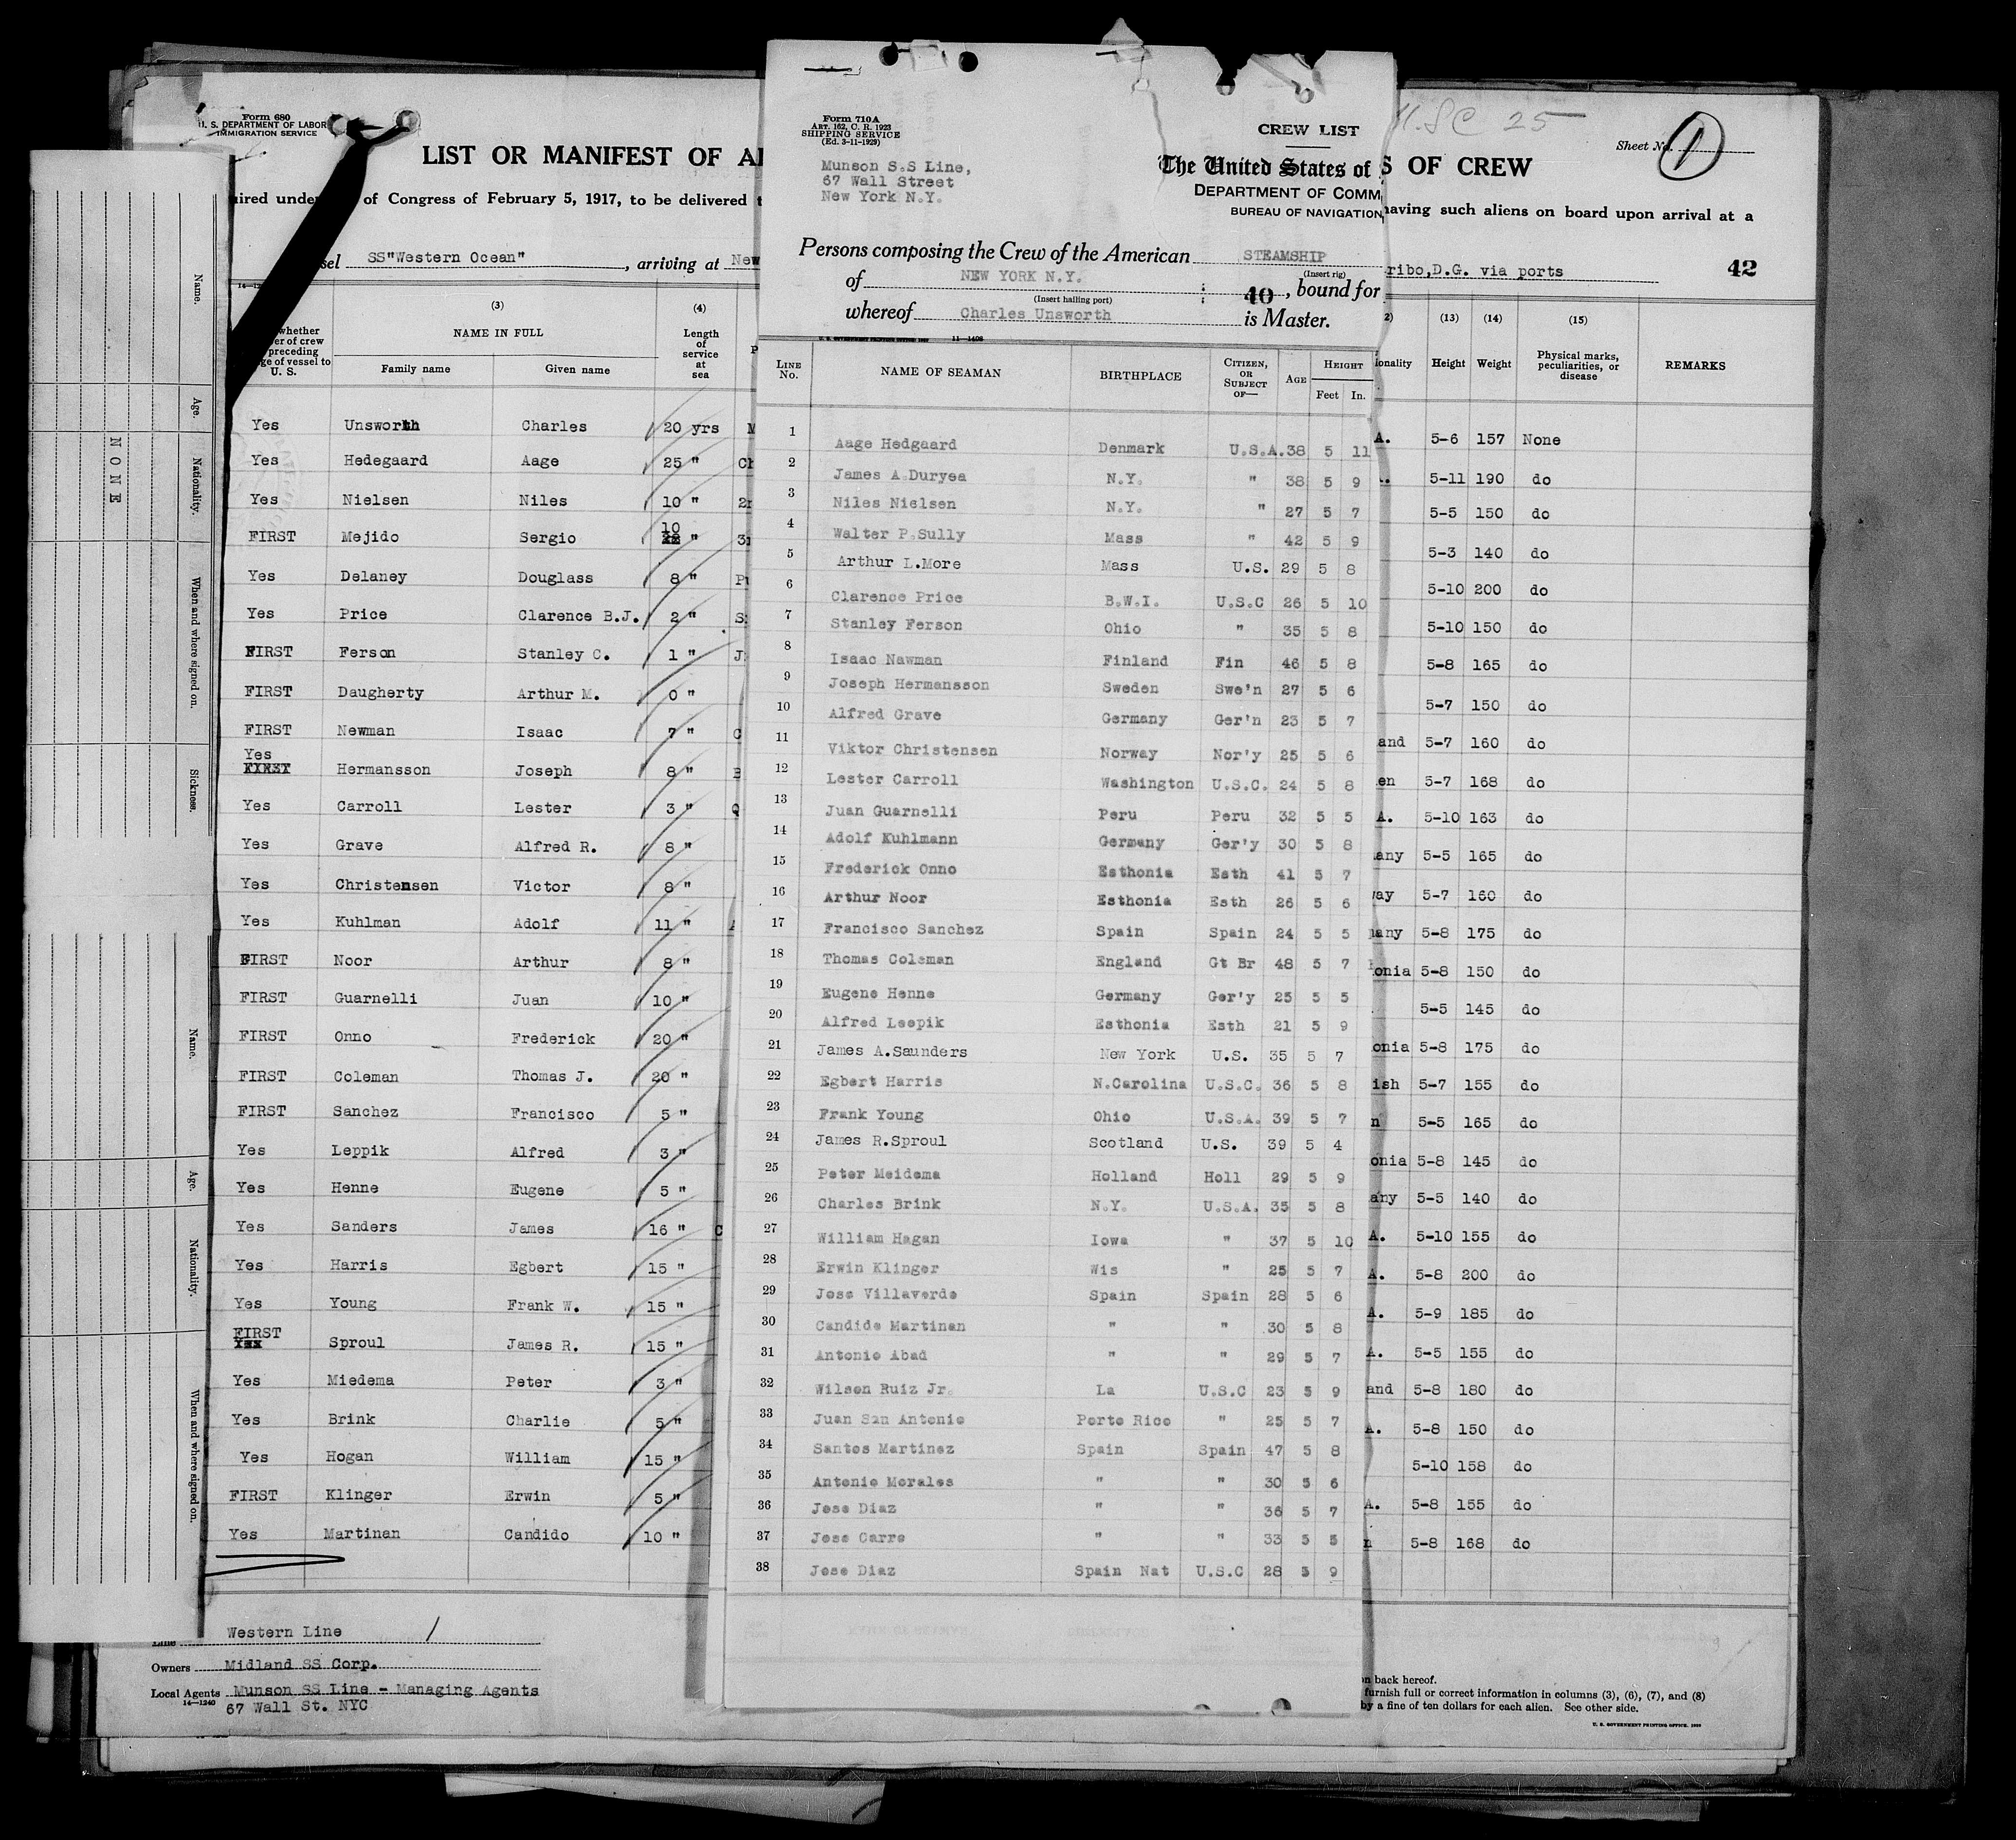 Form 680
U. S. DEPARTMENT OF LABOR
IMMIGRATION SERVICE
LIST OR MANIFEST OF
of Congress of February 5, 1917, to be delivered
SS"Western Ocean" , arriving at New
(3) (4)
whether
of crew
preceding
of vessel to
U. S.
NAME IN FULL
Family name Given name
Length
of
service
at
sea
Yes Unsworth Charles 20 yrs
Yes Hedegaard Aage 25 "
Yes Nielsen Niles 10 "
FIRST Mejido Sergio 10 "
Yes Delaney Douglass 8 "
Yes Price Clarence B.J. 2 "
FIRST Ferson Stanley C. 1 "
FIRST Daugherty Arthur M. 0 "
FIRST Newman Isaac 7 "
Yes
FIRST Hermansson Joseph 8 "
Yes Carroll Lester 3 "
Yes Grave Alfred R. 8 "
Yes Christensen Victor 8 "
Yes Kuhlman Adolf 11 "
FIRST Noor Arthur 8 "
FIRST Guarnelli Juan 10 "
FIRST Onno Frederick 20 "
FIRST Coleman Thomas J. 20 "
FIRST Sanchez Francisco 5 "
Yes Leppik Alfred 3 "
Yes Henne Eugene 5 "
Yes Sanders James 16 "
Yes Harris Egbert 15 "
Yes Young Frank W. 15 "
FIRST
Yes Sproul James R. 15 "
Yes Miedema Peter 3 "
Yes Brink Charlie 5 "
Yes Hogan William 15 "
FIRST Klinger Erwin 5 "
Yes Martinan Candido 10 "
Line Western Line
Owners Midland SS Corp.
Local Agents Munson SS Line - Managing Agents
14—1240 67 Wall St. NYC
Name.
Age.
Nationality.
When and where signed on.
Sickness.
NONE
Name.
Age.
Nationality.
When and where signed on.
Form 710A
ART. 162, C. R. 1923
SHIPPING SERVICE
(Ed. 3-11-1929)
Munson S.S Line,
67 Wall Street
New York N.Y.
CREW LIST
The United States of
DEPARTMENT OF COMM
BUREAU OF NAVIGATION
Persons composing the Crew of the American STEAMSHIP
(Insert rig)
of NEW YORK N.Y. 40 , bound for
(Insert hailing port)
whereof Charles Unsworth is Master.
11—1408
LINE No. NAME OF SEAMAN BIRTHPLACE CITIZEN, OR SUBJECT OF— AGE HEIGHT Feet In.
1 Aage Hedgaard Denmark U.S.A. 38 5 11
2 James A.Duryea N.Y. " 38 5 9
3 Niles Nielsen N.Y. " 27 5 7
4 Walter P.Sully Mass " 42 5 9
5 Arthur L.More Mass U.S. 29 5 8
6 Clarence Price B.W.I. U.S.C 26 5 10
7 Stanley Ferson Ohio " 35 5 8
8 Isaac Nawman Finland Fin 46 5 8
9 Joseph Hermansson Sweden Swe'n 27 5 6
10 Alfred Grave Germany Ger'n 23 5 7
11 Viktor Christensen Norway Nor'y 25 5 6
12 Lester Carroll Washington U.S.C. 24 5 8
13 Juan Guarnelli Peru Peru 32 5 5
14 Adolf Kuhlmann Germany Ger'y 30 5 8
15 Frederick Onno Esthonia Esth 41 5 7
16 Arthur Noor Esthonia Esth 26 5 6
17 Francisco Sanchez Spain Spain 24 5 5
18 Thomas Coleman England Gt Br 48 5 7
19 Eugene Henne Germany Ger'y 25 5 5
20 Alfred Leepik Esthonia Esth 21 5 9
21 James A.Saunders New York U.S. 35 5 7
22 Egbert Harris N.Carolina U.S.C. 36 5 8
23 Frank Young Ohio U.S.A. 39 5 7
24 James R.Sproul Scotland U.S. 39 5 4
25 Peter Meidema Holland Holl 29 5 9
26 Charles Brink N.Y. U.S.A. 35 5 8
27 William Hagan Iowa " 37 5 10
28 Erwin Klinger Wis " 25 5 7
29 Jose Villaverde Spain Spain 28 5 6
30 Candido Martinan " " 30 5 8
31 Antonio Abad " " 29 5 7
32 Wilson Ruiz Jr. La U.S.C 23 5 9
33 Juan San Antonio Porto Rico " 25 5 7
34 Santos Martinez Spain Spain 47 5 8
35 Antonio Morales " " 30 5 6
36 Jose Diaz " " 36 5 7
37 Jose Carro " " 33 5 5
38 Jose Diaz Spain Nat U.S.C 28 5 9
25
Sheet No. 1
S OF CREW
having such aliens on board upon arrival at a
ribo,D.G. via ports 42
(13) (14) (15)
ionality Height Weight Physical marks, peculiarities, or disease REMARKS
A. 5-6 157 None
5-11 190 do
5-5 150 do
5-3 140 do
5-10 200 do
5-10 150 do
5-8 165 do
5-7 150 do
and 5-7 160 do
en 5-7 168 do
A. 5-10 163 do
any 5-5 165 do
way 5-7 160 do
many 5-8 175 do
onia 5-8 150 do
5-5 145 do
onia 5-8 175 do
ish 5-7 155 do
n 5-5 165 do
onia 5-8 145 do
any 5-5 140 do
A. 5-10 155 do
A. 5-8 200 do
A. 5-9 185 do
A. 5-5 155 do
and 5-8 180 do
A. 5-8 150 do
5-10 158 do
A. 5-8 155 do
n 5-8 168 do
on back hereof.
furnish full or correct information in columns (3), (6), (7), and (8)
by a fine of ten dollars for each alien. See other side.
U. S. GOVERNMENT PRINTING OFFICE